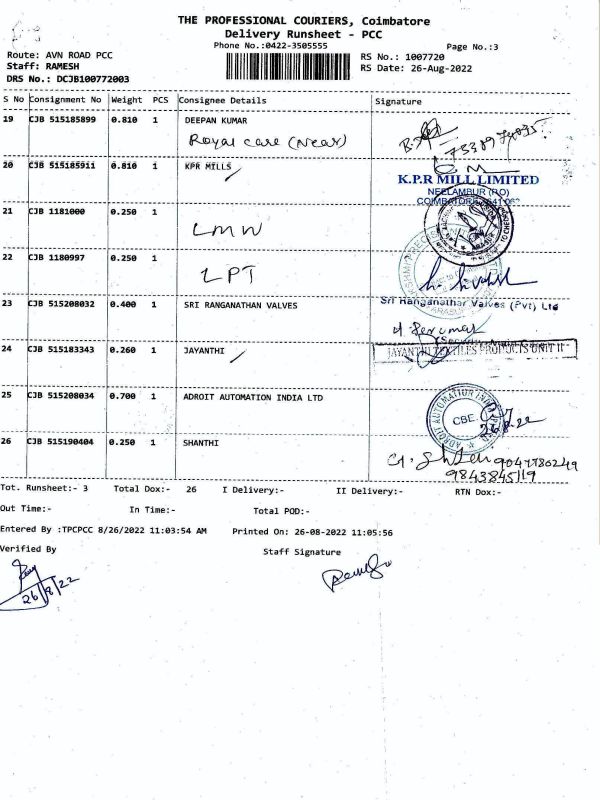 THE PROFESSIONAL COURIERS, Coimbatore
Delivery Runsheet - PCC
Phone No.:0422-3505555
Page No.:3
Route: AVN ROAD PCC
RS No.: 1007720
Staff: RAMESH
RS Date: 26-Aug-2022
DRS No.: DCJB100772003
S No Consignment No Weight PCS Consignee Details Signature
19 CJB 515185899 0.810 1 DEEPAN KUMAR
Royal care (Near)
20 CJB 515185911 0.810 1 KPR MILLS
K.P.R MILL LIMITED
NEELAMBUR (PO)
21 CJB 1181000 0.250 1
LMW
22 CJB 1180997 0.250 1
LPT
23 CJB 515208032 0.400 1 SRI RANGANATHAN VALVES
Sri Ranganathar Valves (Pvt) Ltd
24 CJB 515183343 0.260 1 JAYANTHI
JAYANTHI TEXTILES PRODUCTS UNIT II
25 CJB 515208034 0.700 1 ADROIT AUTOMATION INDIA LTD
ADROIT AUTOMATION INDIA
CBE.
26.8.22
26 CJB 515190404 0.250 1 SHANTHI
9047780249
9843845119
Tot. Runsheet:- 3 Total Dox:- 26 I Delivery:- II Delivery:- RTN Dox:-
Out Time:- In Time:- Total POD:-
Entered By :TPCPCC 8/26/2022 11:03:54 AM Printed On: 26-08-2022 11:05:56
Verified By Staff Signature
26/8/22